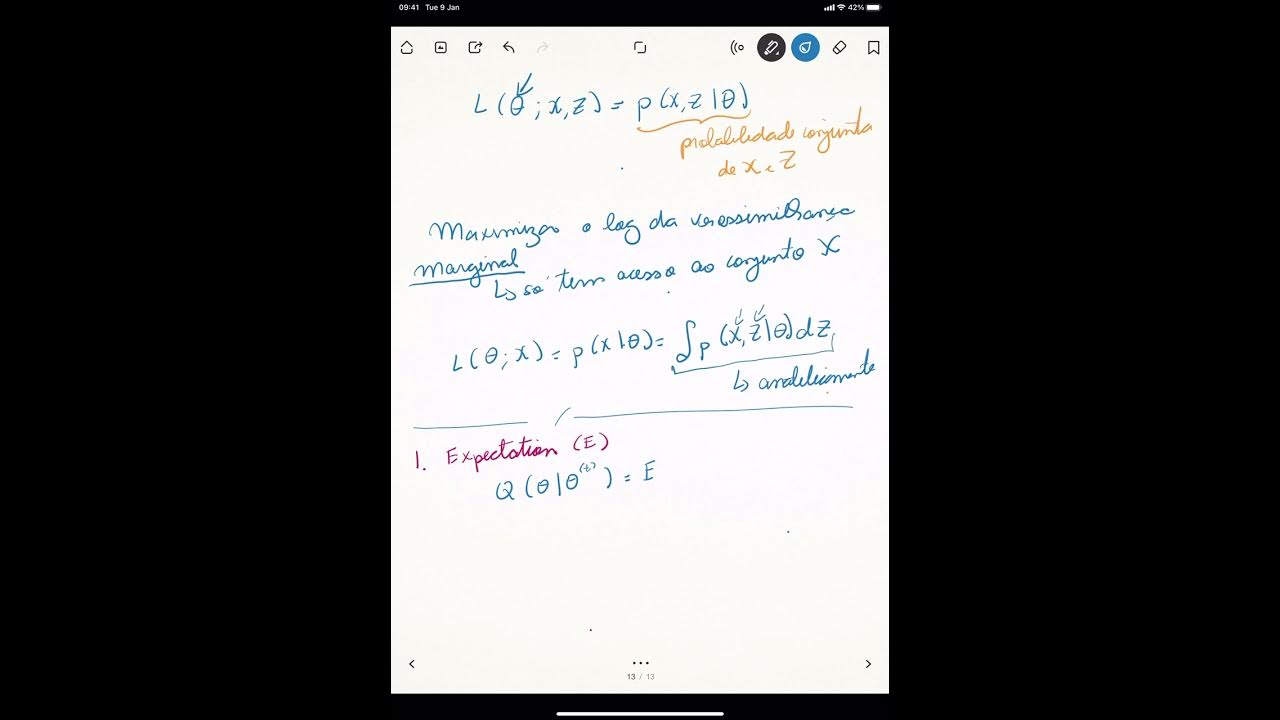 09:41 Tue 9 Jan
42%
L(θ; x, z) = p(x, z | θ)
probabilidade conjunta
de x e Z
Maximizar o log da verossimilhança
marginal
↳ só tem acesso ao conjunto X
L(θ; x) = p(x | θ) = ∫ p(x, z | θ) dz
↳ analiticamente
1. Expectation (E)
Q(θ | θ^(t)) = E
13 / 13